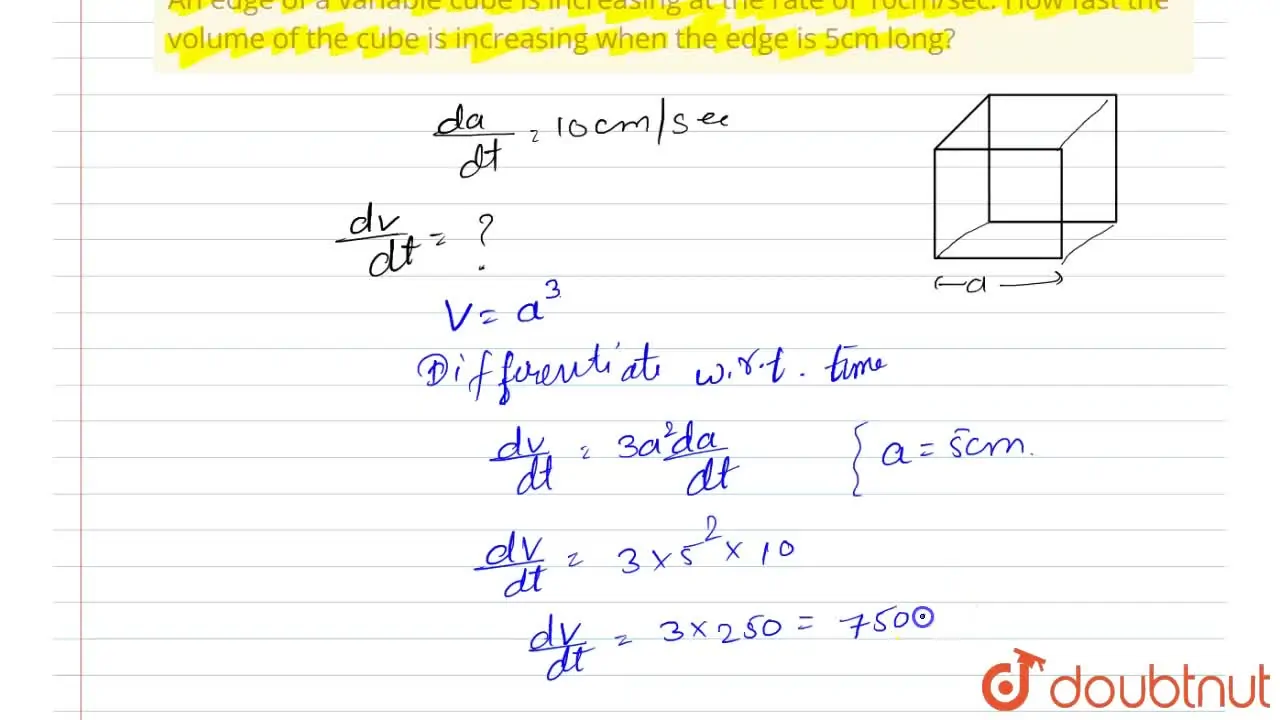 An edge of a variable cube is increasing at the rate of 10cm/sec. How fast the
volume of the cube is increasing when the edge is 5cm long?
da/dt = 10cm/sec
dv/dt = ?
a
V = a³
Differentiate w.r.t. time
dv/dt = 3a² da/dt { a = 5cm.
dv/dt = 3 × 5² × 10
dv/dt = 3 × 250 = 750
doubtnut